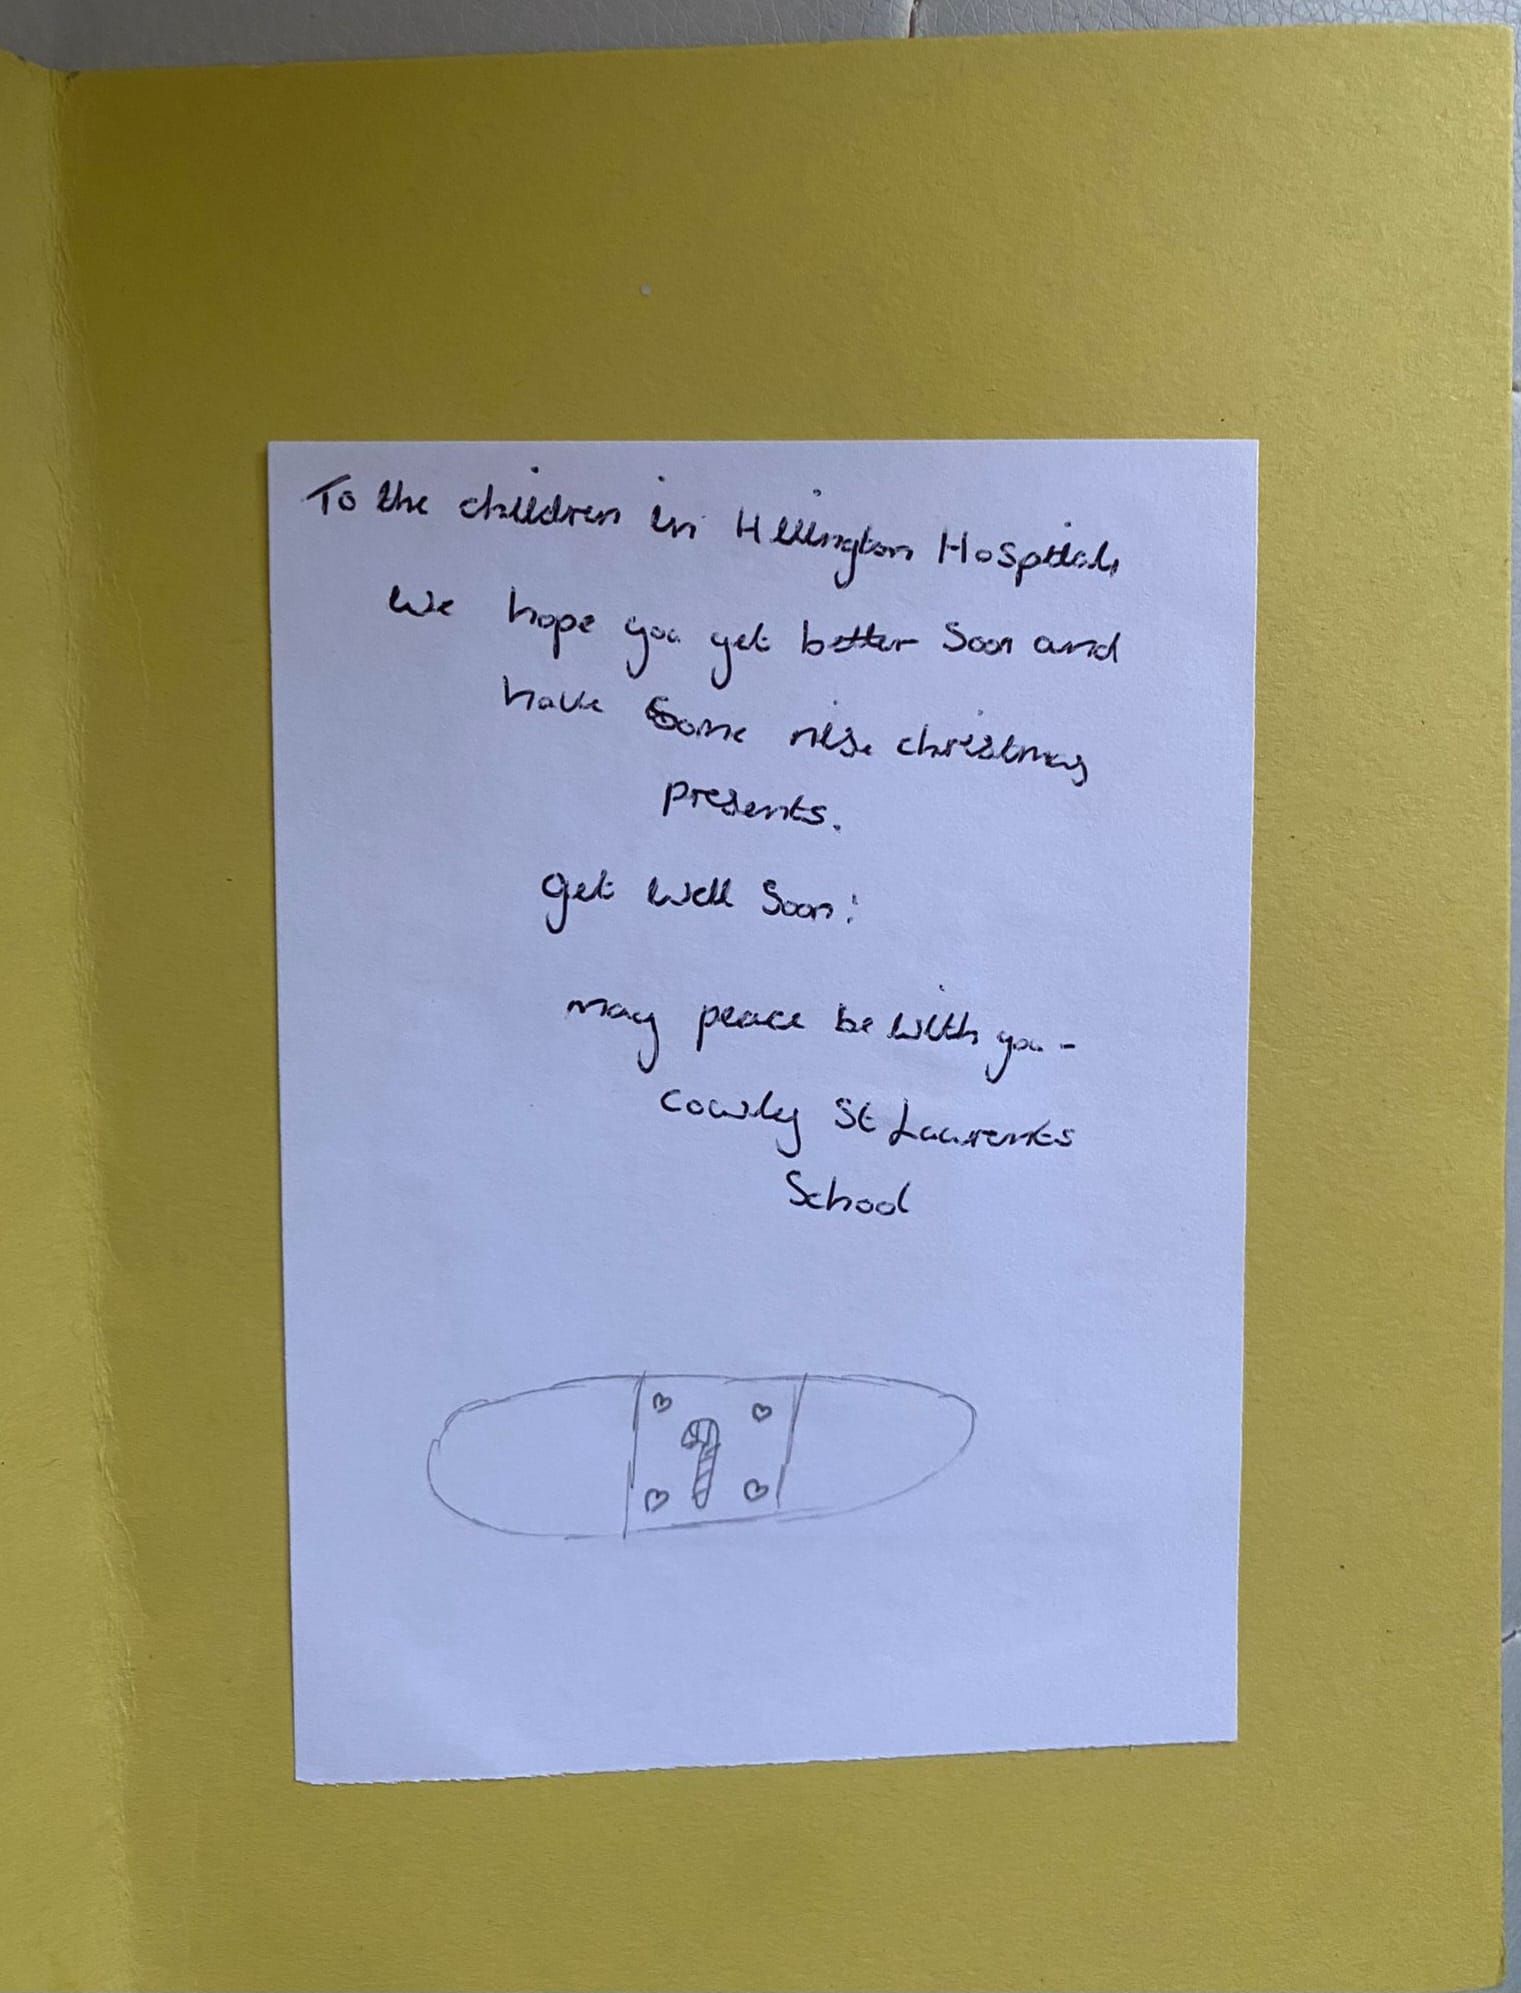 To the children in Hillington Hospital,
We hope you get better soon and
have some nise christmas
presents.
get well Soon!
may peace be with you -
Cowly St Laurents
School